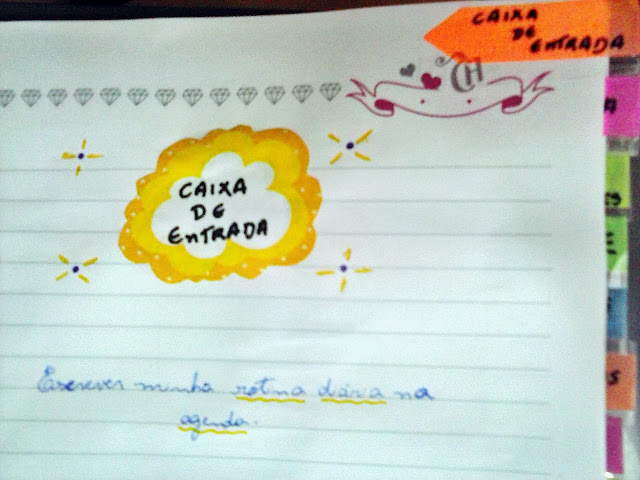 CAIXA
DE
ENTRADA
CH
CAIXA
DE
ENTRADA
Escrever minha rotina diária na
agenda.